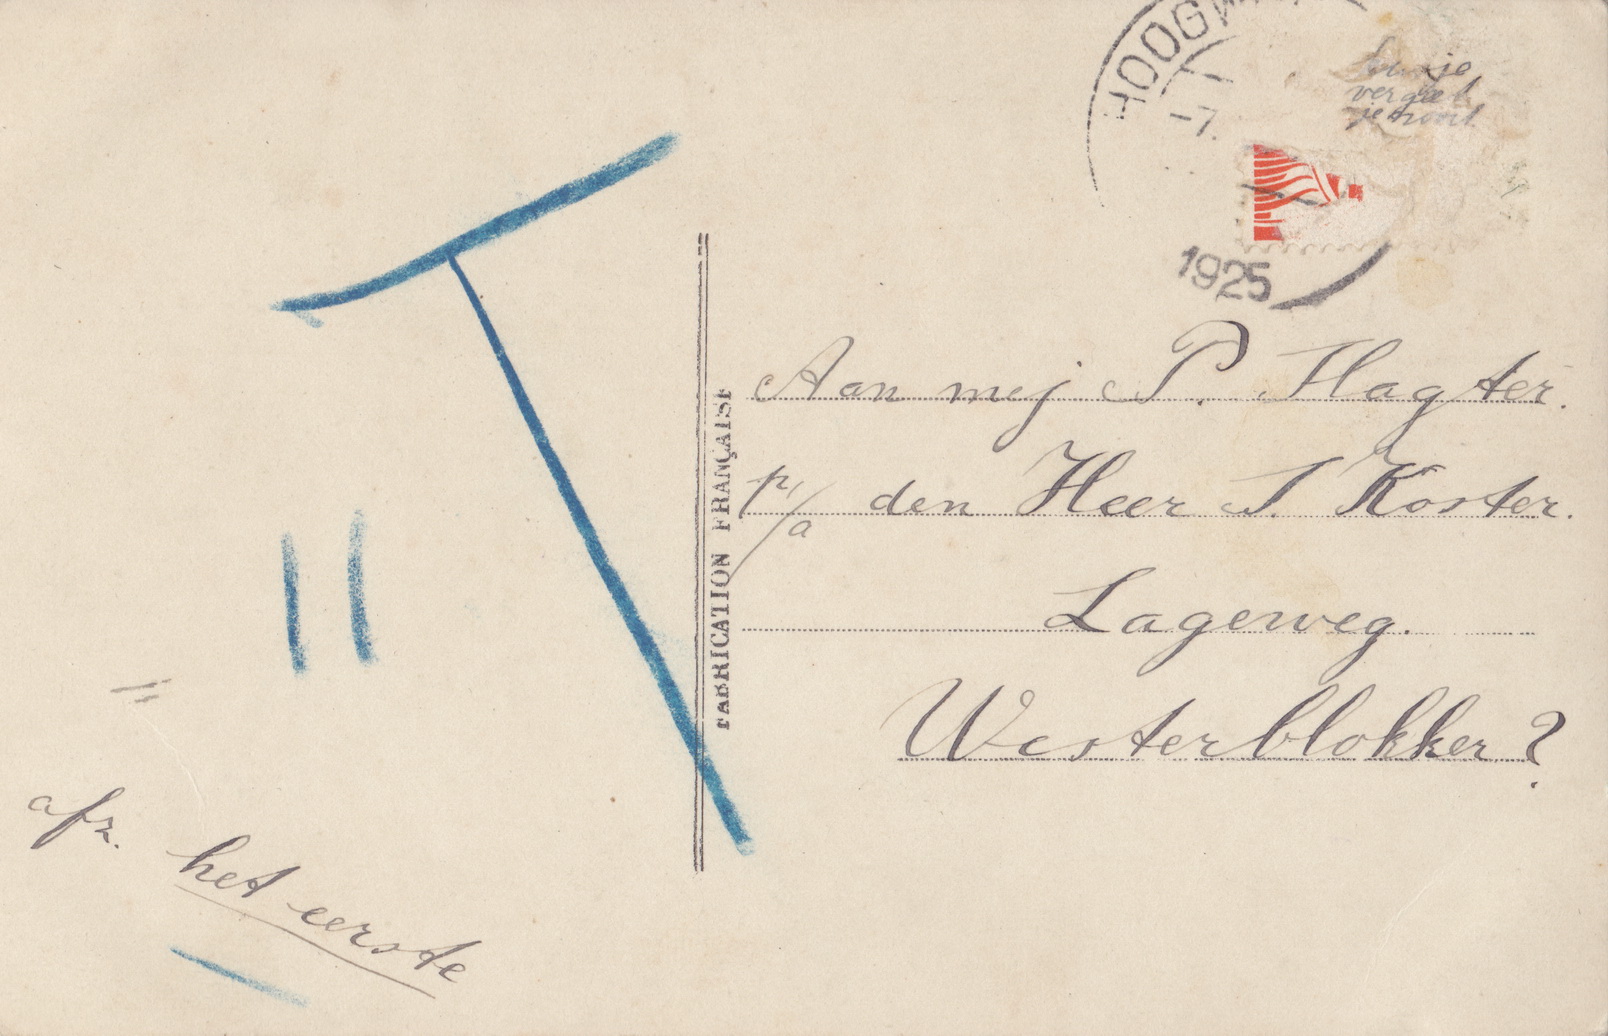 HOOGW
-7.
1925
je
vergeet
je nooit
Aan mej P. Hagter.
p/a den Heer S. Koster.
Lageweg.
Westerblokker?
FABRICATION FRANÇAISE
T
afz. het eerste